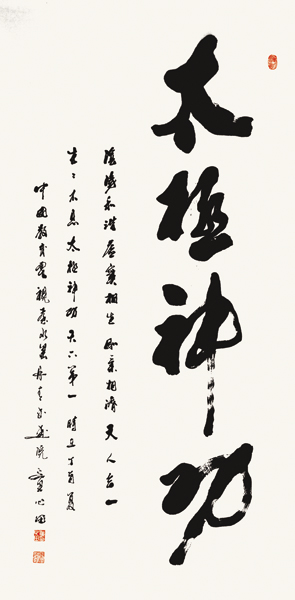 太極神功
陰陽和諧虛實相生剛柔相濟天人合一
生生不息太極神功天下第一時在丁酉夏
中國教育電視臺水墨丹青書畫院